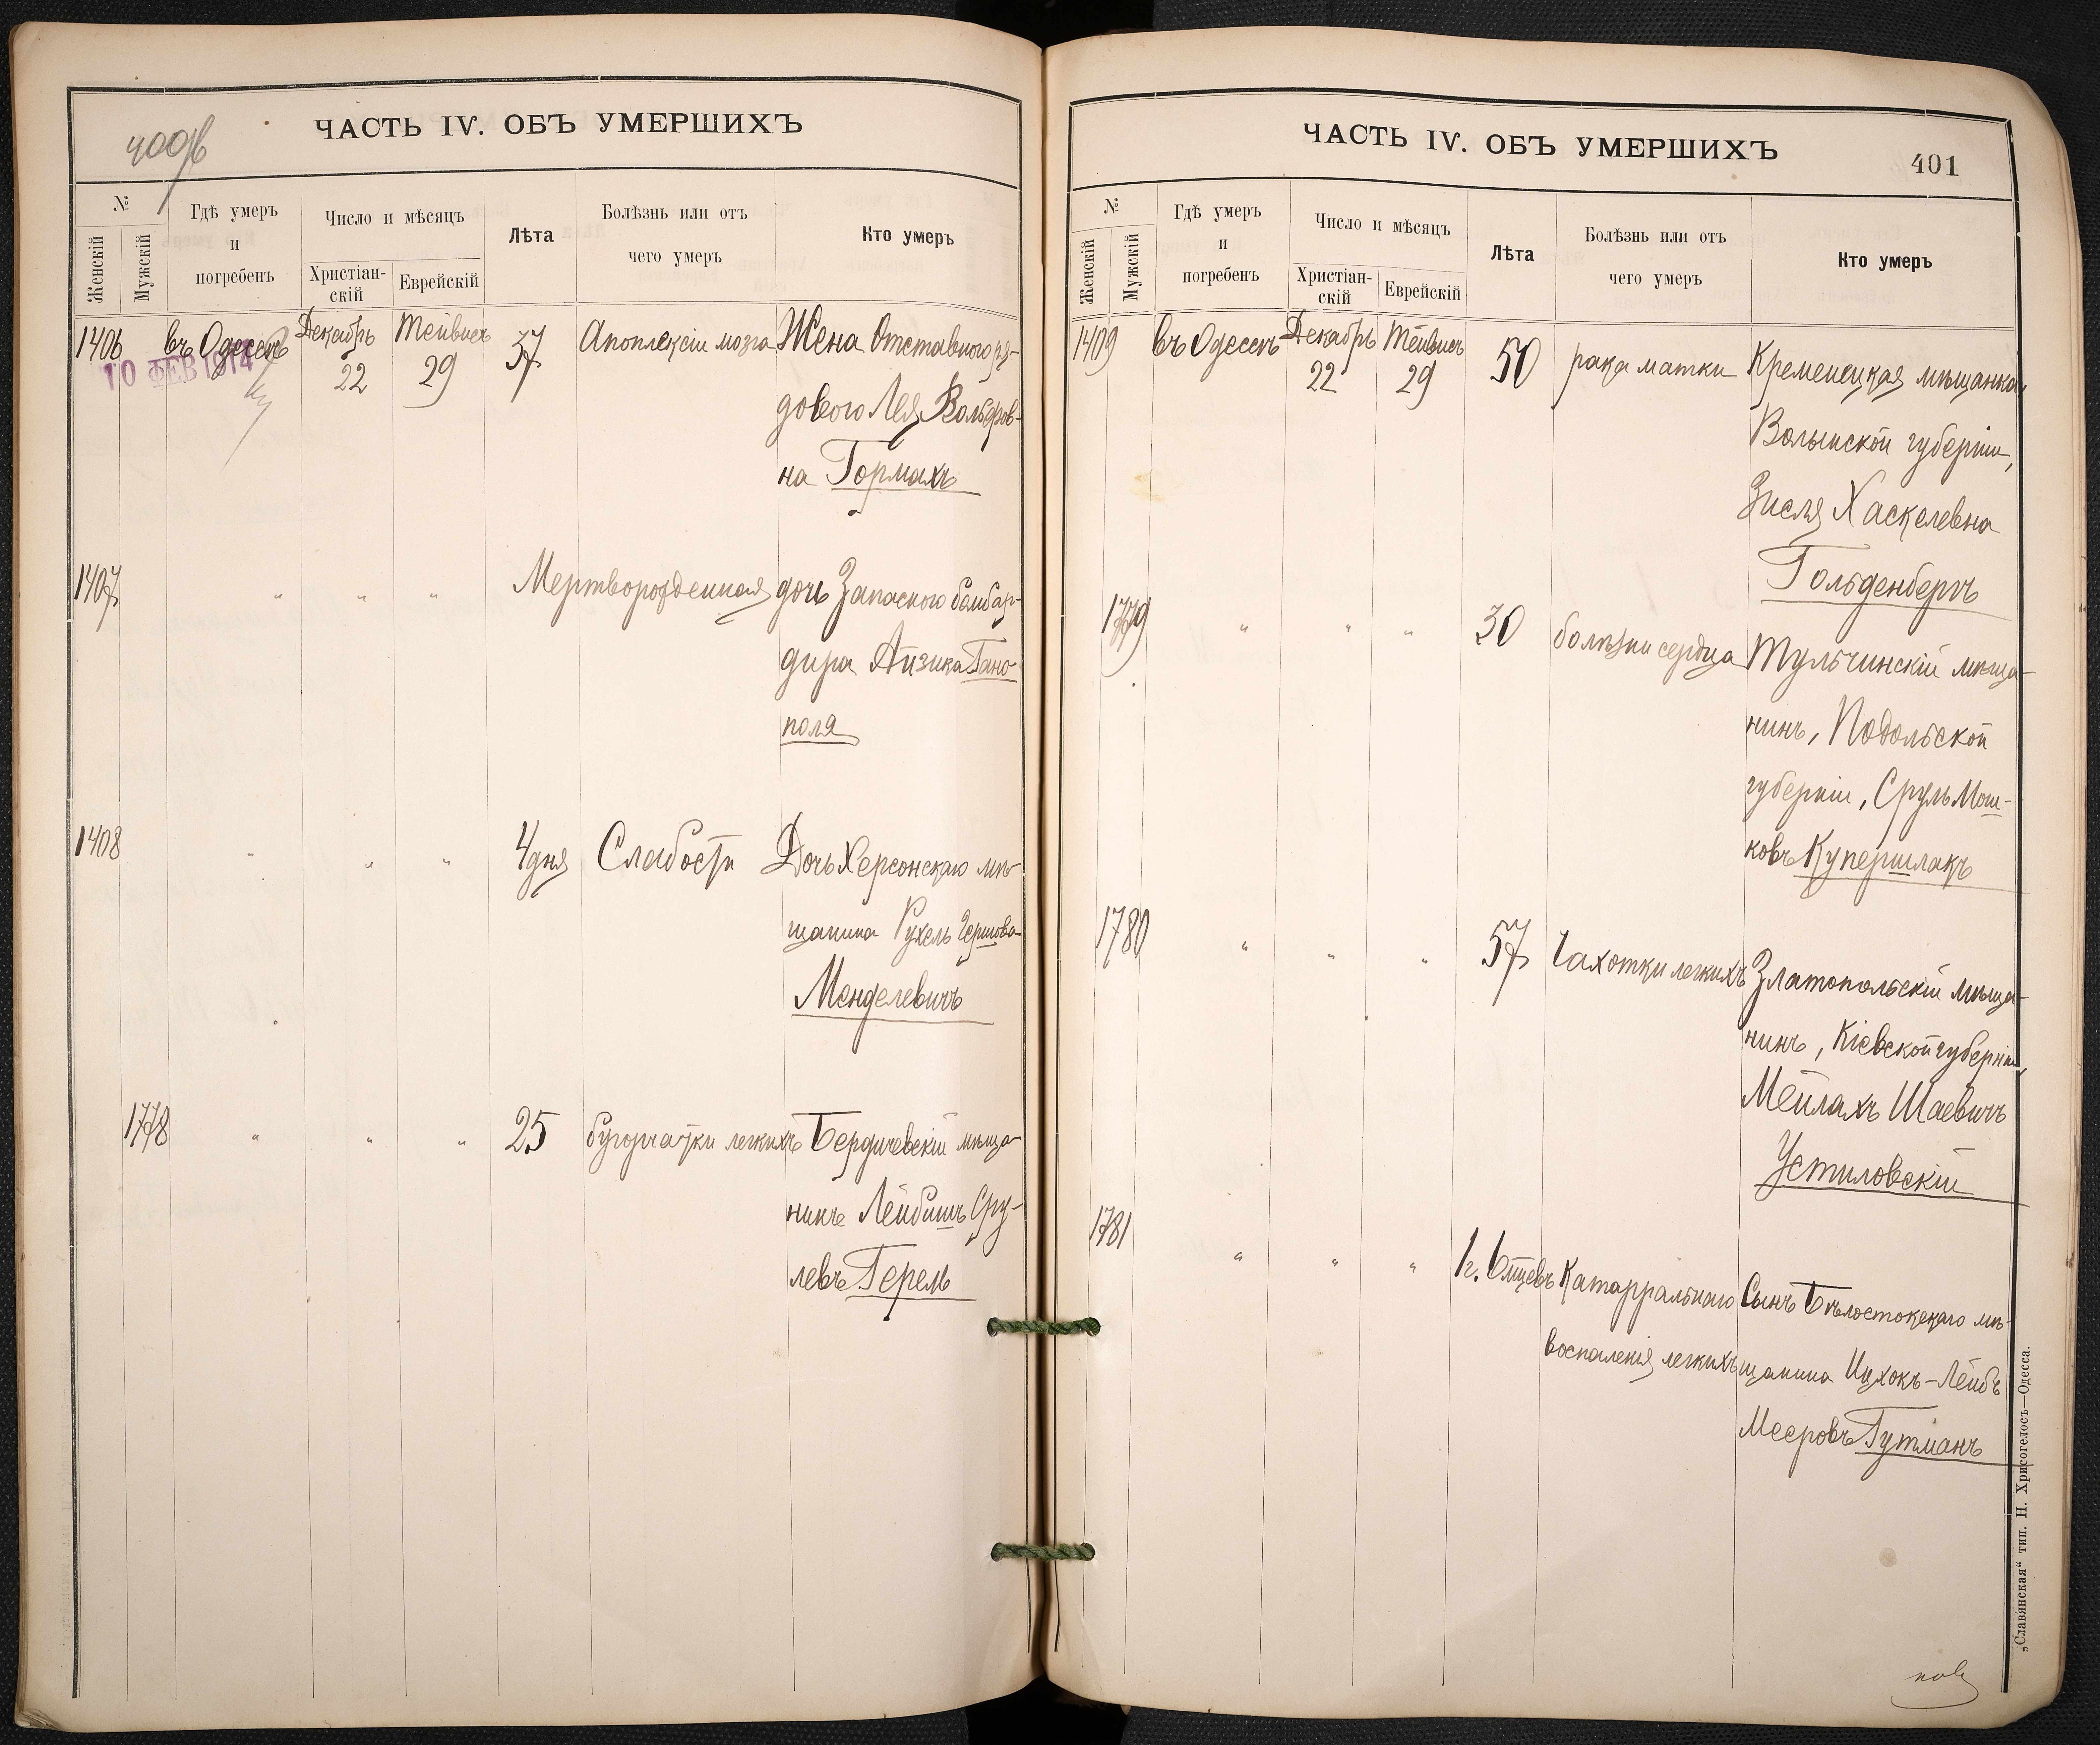 400об
ЧАСТЬ IV. ОБЪ УМЕРШИХЪ
№
Женскій
Мужскій
Гдѣ умеръ
и
погребенъ
Число и мѣсяцъ
Христіан-
скій
Еврейскій
Лѣта
Болѣзнь или отъ
чего умеръ
Кто умеръ
1406 въ Одессѣ Декабрь 22 Тейвисъ 29 37 Апоплексіи мозга Жена Отставного ря-
10 ФЕВ 1914
дового Лея Вольфов-
на Гормахъ
1407 " " " Мертворожденная дочь Запасного бомбар-
дира Айзика Гано-
поля
1408 " " " 4 дня Слабости Дочь Херсонскаго мѣ-
щанина Рухель Гершова
Менделевичъ
1778 " " " 25 бугорчатки легкихъ Бердичевскій мѣща-
нинъ Лейбишъ Сру-
левъ Герель
ЧАСТЬ IV. ОБЪ УМЕРШИХЪ
401
№
Женскій
Мужскій
Гдѣ умеръ
и
погребенъ
Число и мѣсяцъ
Христіан-
скій
Еврейскій
Лѣта
Болѣзнь или отъ
чего умеръ
Кто умеръ
1409 въ Одессѣ Декабрь 22 Тейвисъ 29 50 рака матки Кременецкая мѣщанка,
Волынской губерніи,
Зисля Хаскелевна
Гольденбергъ
1779 " " " 30 болѣзни сердца Тульчинскій мѣща-
нинъ, Подольской
губерніи, Сруль Мош-
ковъ Купершлакъ
1780 " " " 57 Чахотки легкихъ Златопольскій мѣща-
нинъ, Кіевской губерніи,
Мейлахъ Шаевичъ
Устиловскій
1781 " " " 1 г. 6 мцевъ Катарральнаго Сынъ Бѣлостокскаго мѣ-
воспаленія легкихъ щанина Ицхокъ-Лейбъ
Мееровъ Гутманъ
„Славянская“ тип. Н. Хрисогелосъ—Одесса.